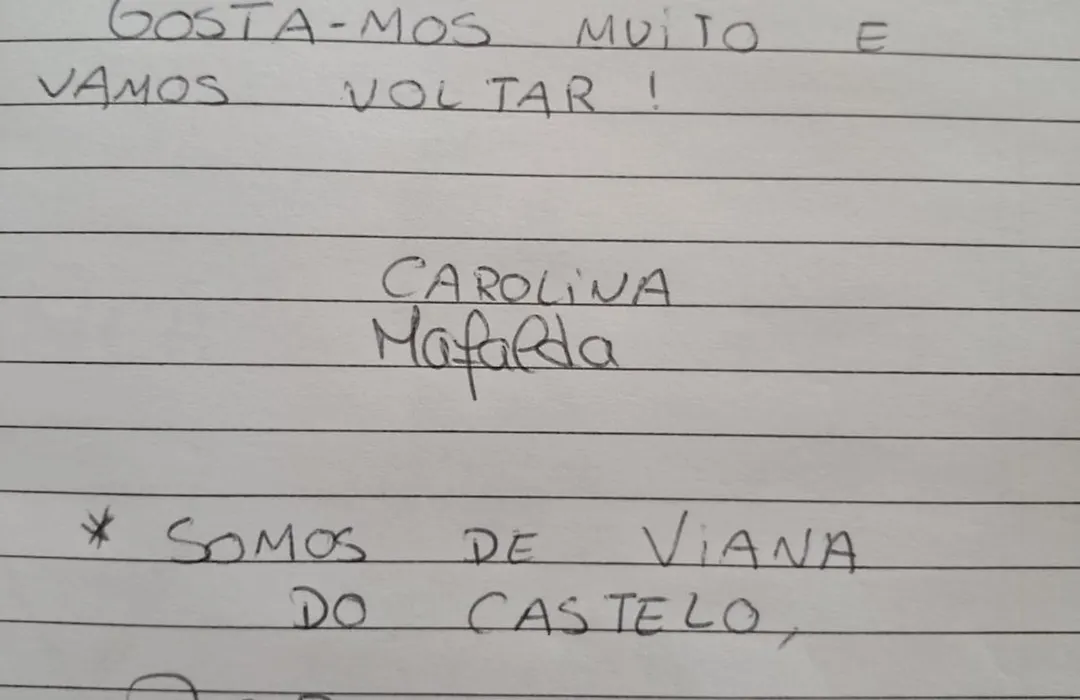 GOSTA-MOS MUiTO E
VAMOS VOLTAR !
CAROLiNA
Mafalda
* SOMOS DE ViANA
DO CASTELO,